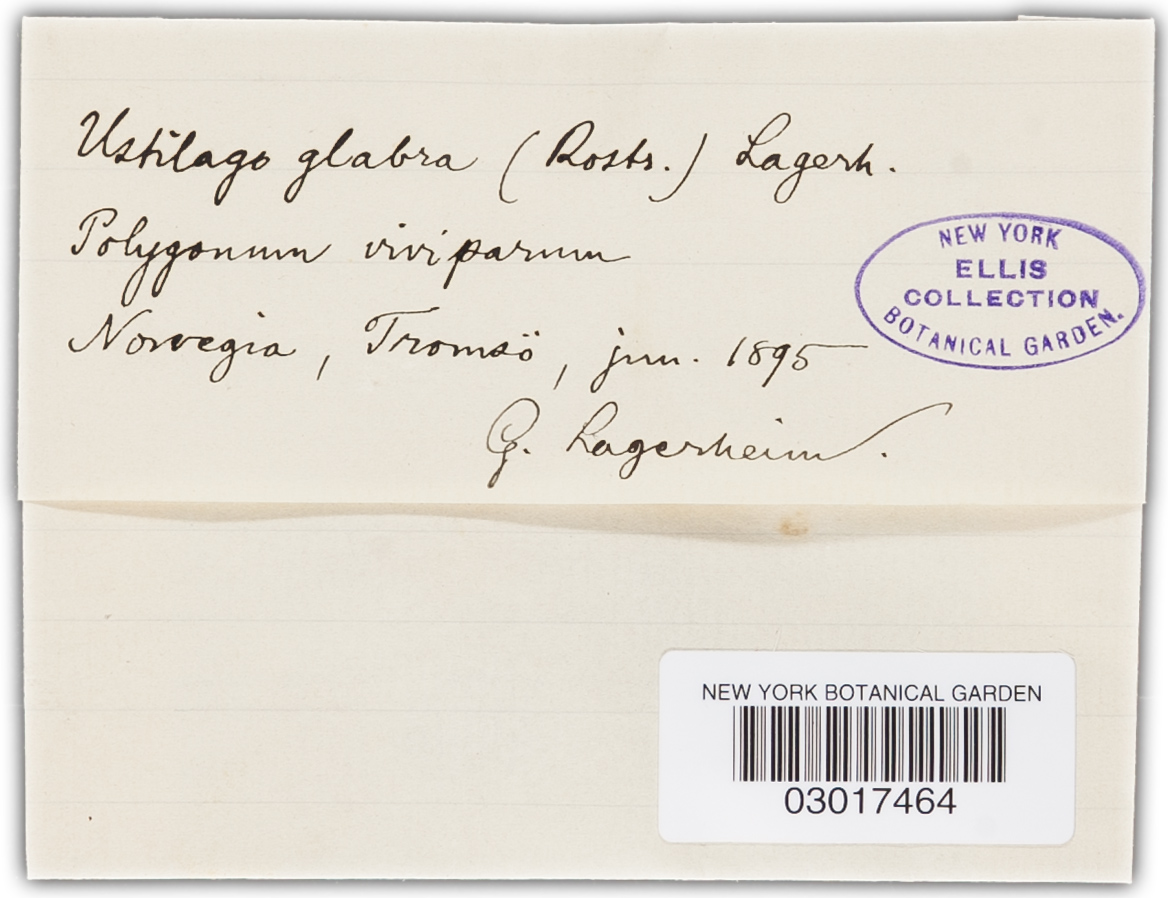 Ustilago glabra (Rostr.) Lagerh.
Polygonum viviparum
Norvegia, Tromsö, jun. 1895
G. Lagerheim.
NEW YORK
ELLIS
COLLECTION
BOTANICAL GARDEN.
NEW YORK BOTANICAL GARDEN
03017464